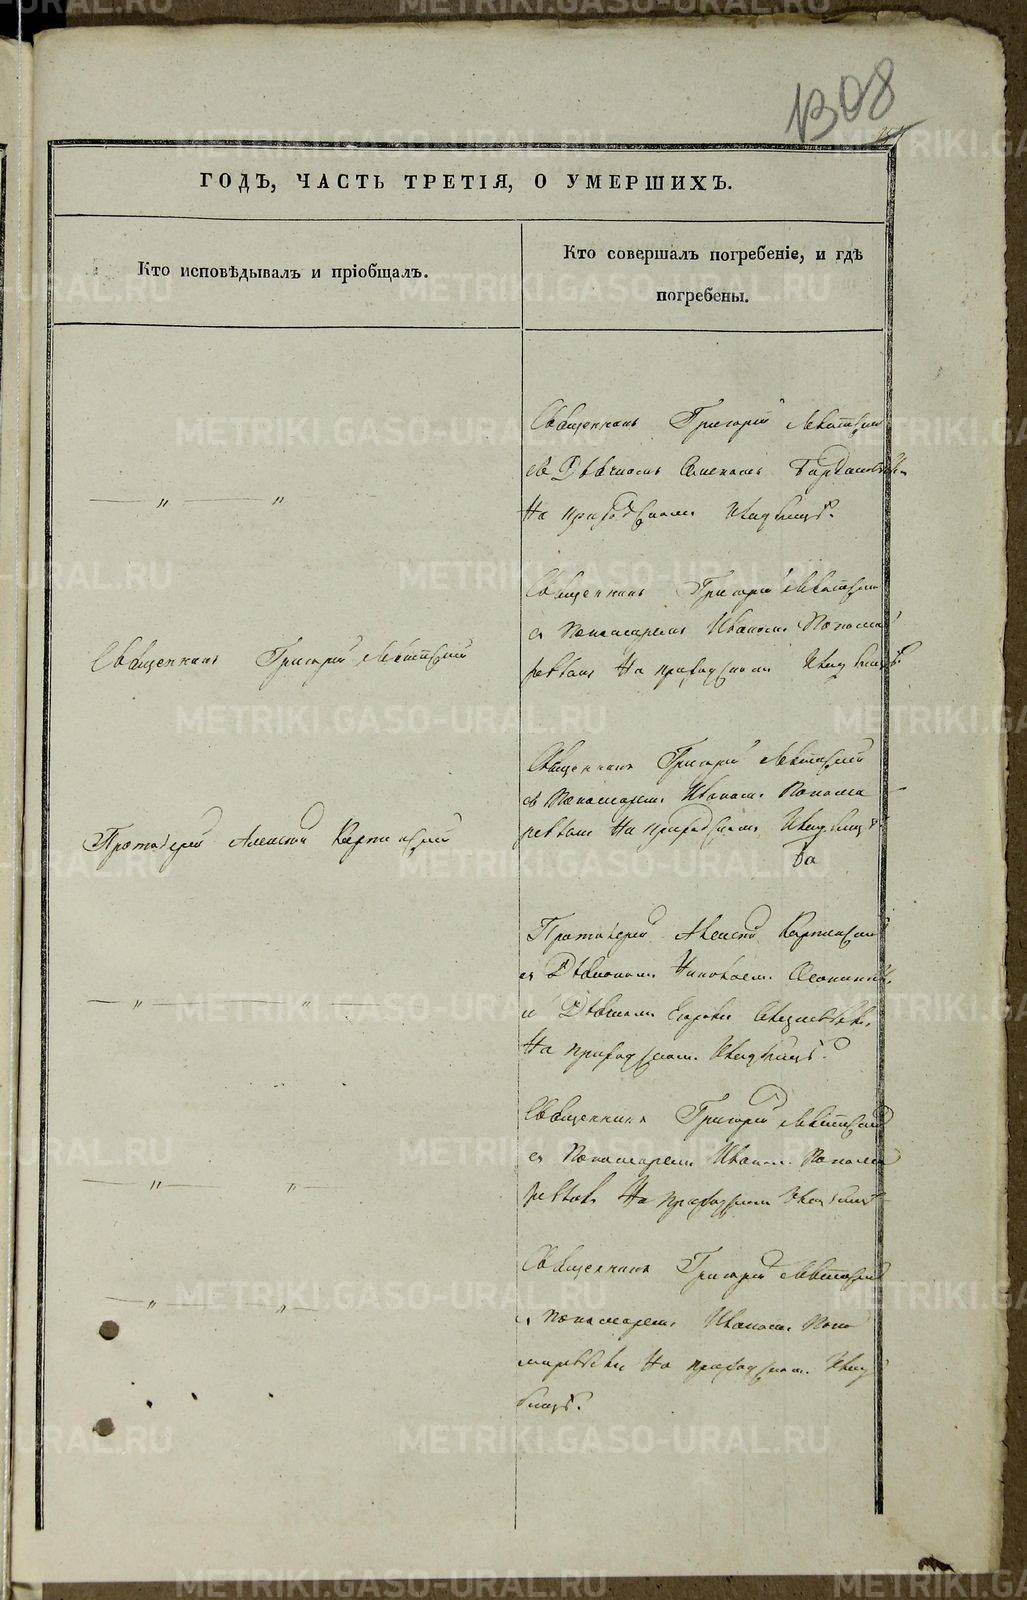 1308
ГОДЪ, ЧАСТЬ ТРЕТІЯ, О УМЕРШИХЪ.
Кто исповѣдывалъ и пріобщалъ.
Кто совершалъ погребеніе, и гдѣ
погребены.
Священникъ Григорій Левитскій
съ Дьячкомъ Семеномъ
На приходскомъ Кладбищѣ.
Священникъ Григорій Левитскій
Священникъ Григорій Левитскій
съ Пономаремъ Иваномъ Понома
ревымъ На приходскомъ Кладбищѣ.
Протоіерей Алексей
Священникъ Григорій Левитскій
съ Пономаремъ Иваномъ Понома
ревымъ На приходскомъ Кладбищѣ
Протоіерей Алексей
съ Дьякономъ Николаемъ
и Дьячкомъ
На приходскомъ Кладбищѣ.
Священникъ Григорій Левитскій
съ Пономаремъ Иваномъ Понома
ревымъ На приходскомъ Кладбищѣ
Священникъ Григорій Левитскій
съ пономаремъ Иваномъ Поно
маревымъ На приходскомъ Клад
бищѣ.
METRIKI.GASO-URAL.RU